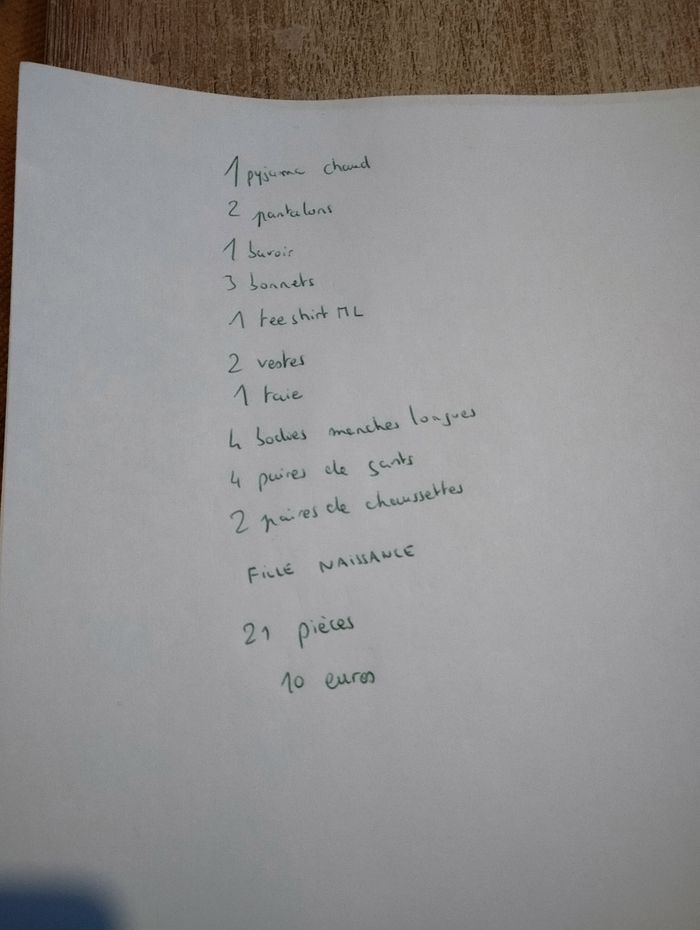 1 pyjama chaud
2 pantalons
1 bavoir
3 bonnets
1 tee shirt ML
2 vestes
1 taie
4 bodies manches longues
4 paires de gants
2 paires de chaussettes
FILLE NAISSANCE
21 pièces
10 euros